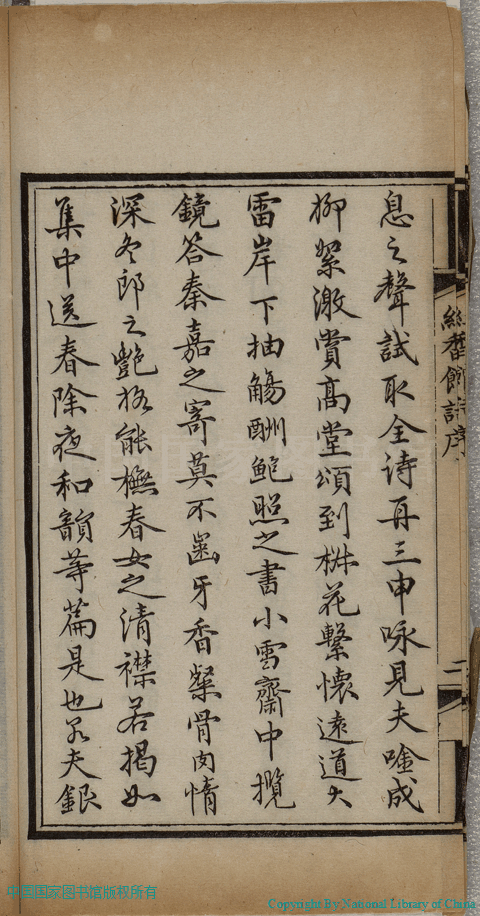 息之聲試取全诗再三申咏見夫唫成
柳絮激賞高堂頌到椒花繫懷遠道大
雷岸下抽觴酬鲍照之書小雪齋中攬
鏡答秦嘉之寄莫不齒牙香粲骨肉情
深冬郎之艷格能橅春女之清襟若揭如
集中送春除夜和韻等篇是也夫銀
館詩序
二
中国国家图书馆版权所有
Copyright By National Library of China